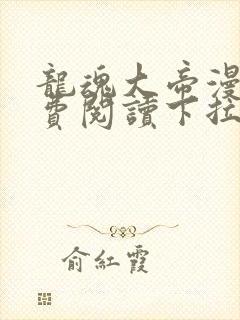 龍魂大帝漫
費閱讀下拉
俞紅霞